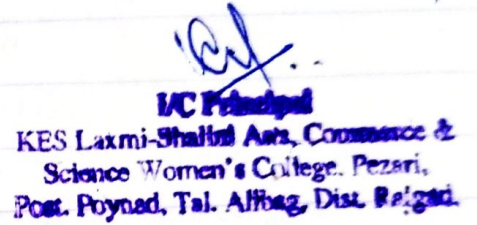 I/C Principal
KES Laxmi-Shalini Arts, Commerce &
Science Women's College. Pezari,
Post. Poynad, Tal. Alibag, Dist. Raigad.